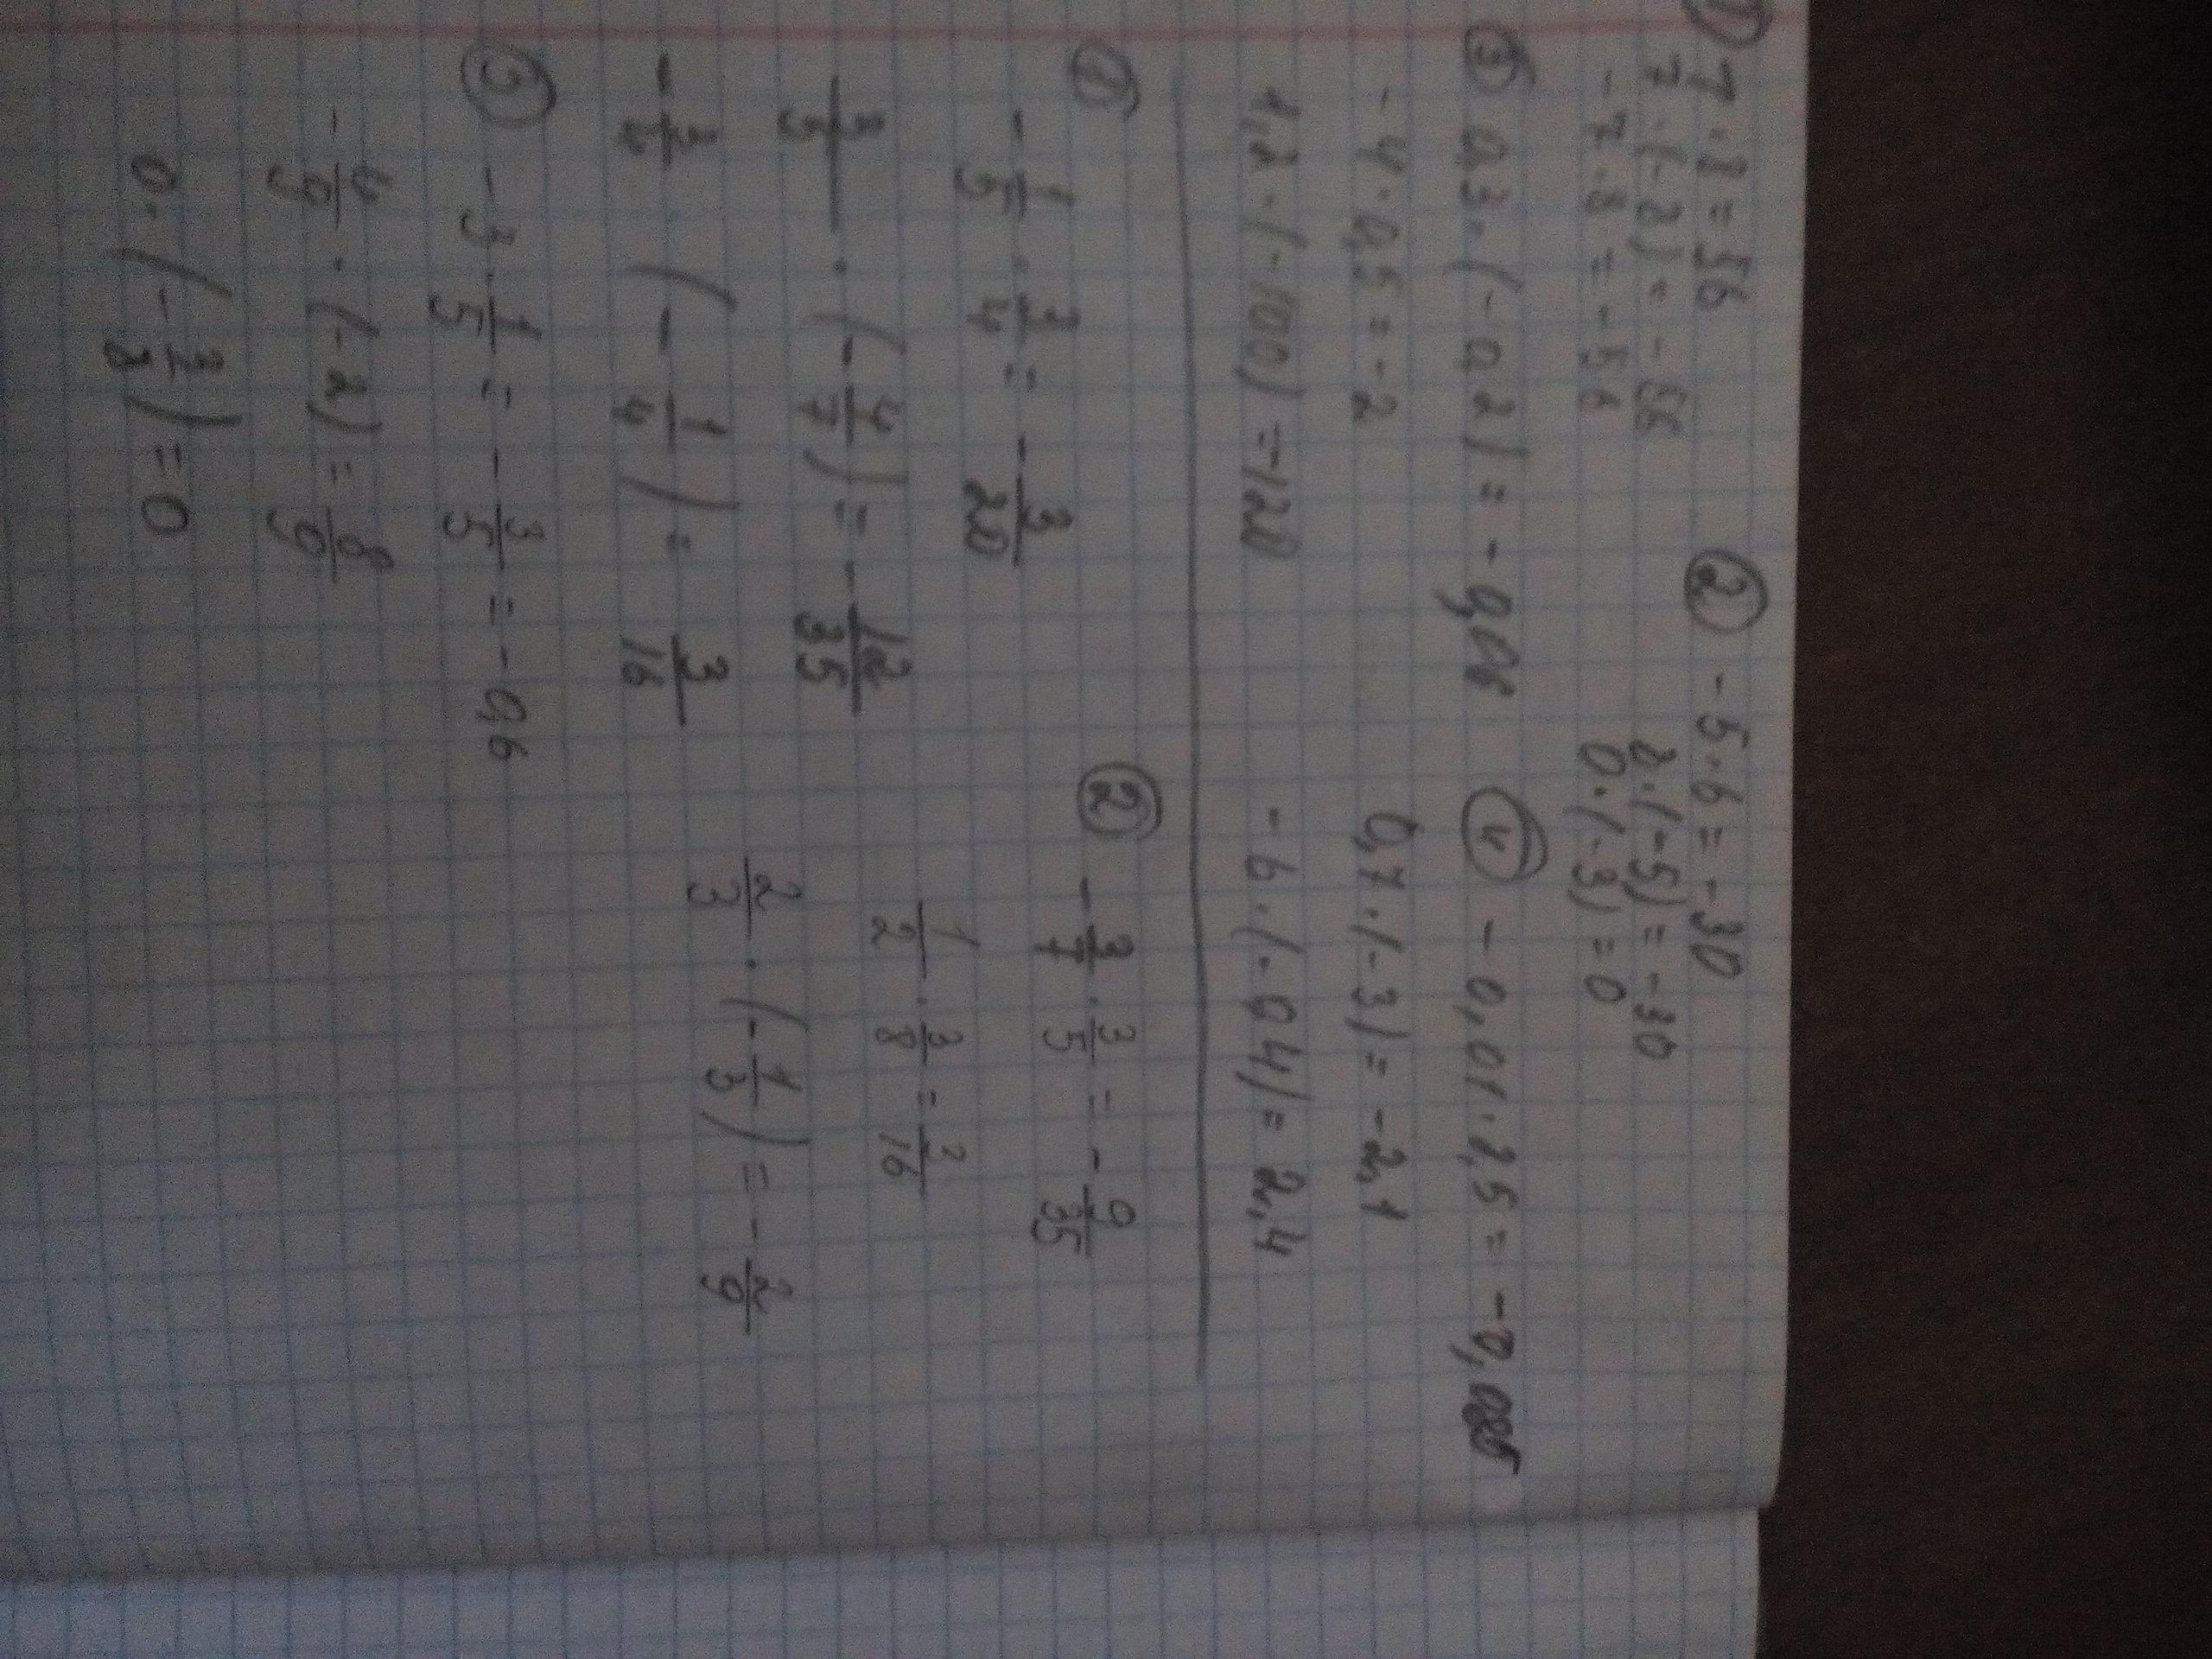 ① 7 · 8 = 56
7 · (-8) = -56
-7 · 8 = -56
② -5 · 6 = -30
8 · (-5) = -30
0 · (-3) = 0
③ 0,3 · (-0,2) = -0,06
-4 · 0,5 = -2
1,2 · (-100) = -120
④ -0,01 · 2,5 = -0,025
0,7 · (-3) = -2,1
-6 · (-0,4) = 2,4
① -1/5 · 3/4 = -3/20
3/5 · (-4/7) = -12/35
-3/4 (-1/4) = 3/16
② -3/7 · 3/5 = -9/35
1/2 · 3/8 = 3/16
2/3 · (-1/3) = -2/9
③ -3 · 1/5 = -3/5 = -0,6
-4/9 · (-2) = 8/9
0 · (-3/8) = 0